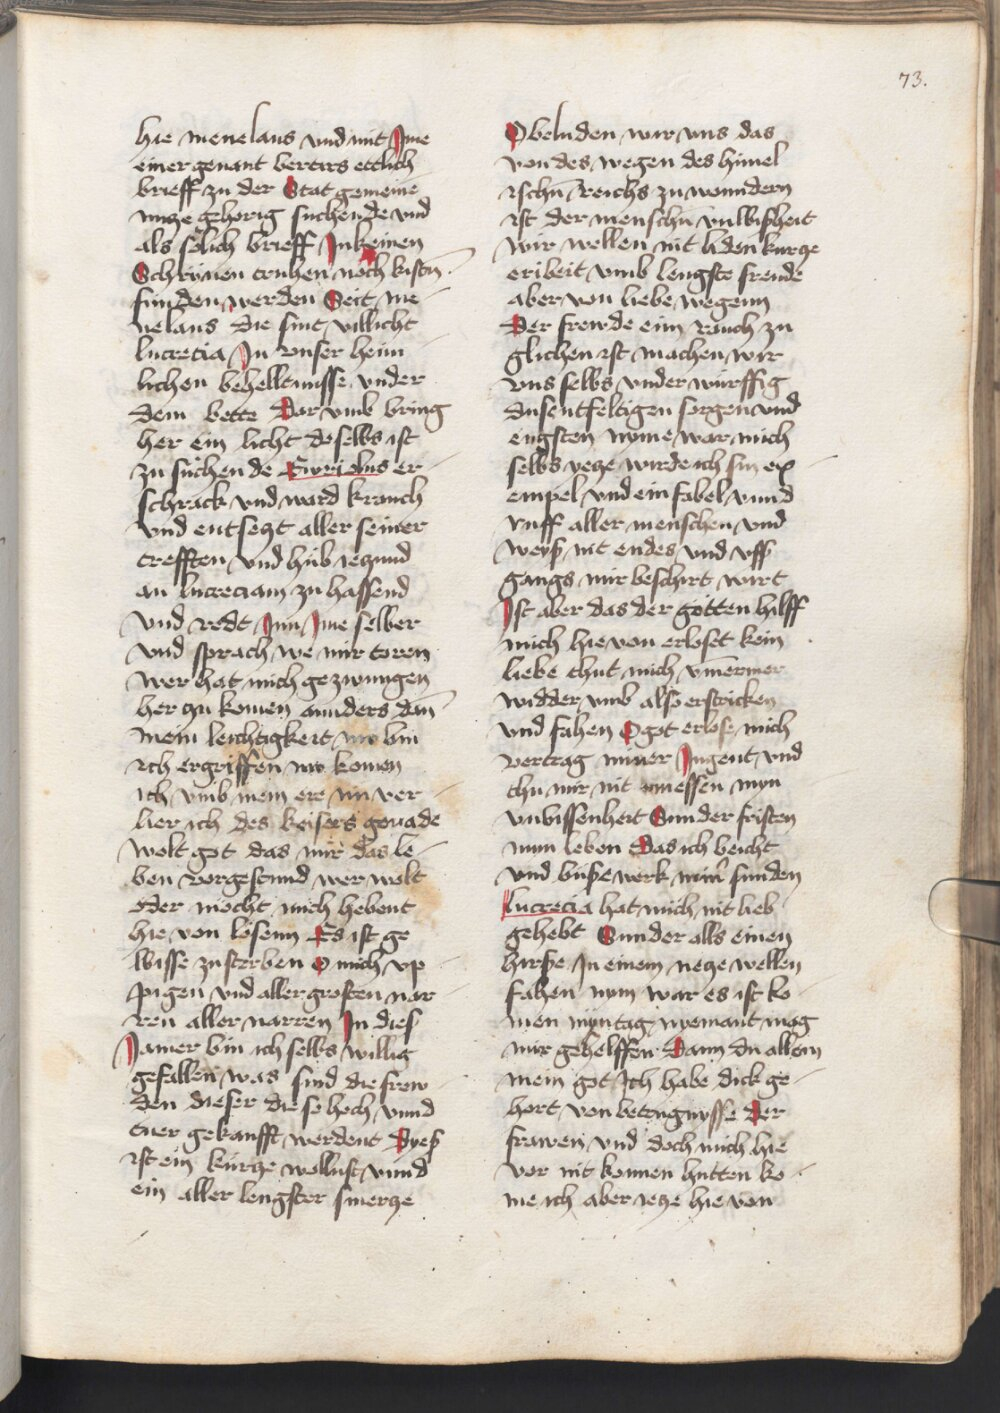 73.
hie menelaus vnd mit Ime
einer genant bertus ettlich
brieff zu der Stat gemeine
nucze gehorig suchende vnd
als sölich brieff In keinen
Schrinen truhen noch kisten
funden werden Seit me
nelaus die sint villicht
lucretia In vnser heim
lichen beheltnisse vnder
dem bette Dar vmb bring
her ein licht doselbs ist
zu suchende Euriolus er
schrack vnd ward kranch
vnd entseczt aller seiner
crefften vnd hub yeczund
an lucreciam zu hassend
vnd redt Inn Ime selber
vnd sprach we mir toren
wer hat mich gezwungen
her zu komen annders dan
mein leichtigkeit nw bin
ich ergriffen nw komen
ich vmb mein ere nu ver
lier ich des keisers gonade
wolt got das mir das le
ben vorgestund wer wolt
oder mocht mich hebent
hie von lösenn Es ist ge
wisse zu sterben O mich vp
pigen vnd aller grosten nar
ren aller narren In dies
Jamer bin ich selbs willig
gefallen was sind die frew
den dieser die so hoch vnnd
tuer gekaufft werdent Dyeß
ist ein kurcze wollust vnnd
ein aller lengster smercze
O beluden wir vns das
von des wegen des himel
ischn reichs zu wonndern
ist der menschn vnwißheit
wir wellen nit liden kurcze
eribeit vmb lengste freude
aber von liebe wegenn
Der frewde eim rouch zu
glichen ist machen wir
vns selbs vnder würffig
dusentfeltigen sorgen vnd
engsten nyme war mich
selbs yecze wirde ich sin ex
empel vnd ein fabel vnnd
ruff aller menschen vnd
weyß nit endes vnd vsß
gangs mir beschirt wirt
Ist aber das der götten hilff
mich hie von erloset kein
liebe thut mich vmermer
widder vmb also erstricken
vnd fahen O got erlose mich
vertrag miner Jugent vnd
thu mir nit messen myn
vnbissenheit Sunder fristen
myn leben Das ich beicht
vnd buße werk minr sunden
Lucrecia hat mich nit lieb
gehebt Sunder alls einen
hirße In einem necze wellen
fahen nym war es ist ko
men myn tag nyemant mag
mir gehelffen Dann du allein
mein got Ich habe dick ge
hort von betrugnysse der
frawen vnd doch mich hie
vor nit konnen hutten ko
me ich aber iecze hie von